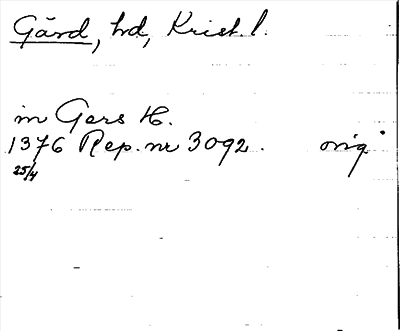 Gärd, hd, Krist. l.
in Gers H.
1376 Rep. nr 3092. orig.
25/4